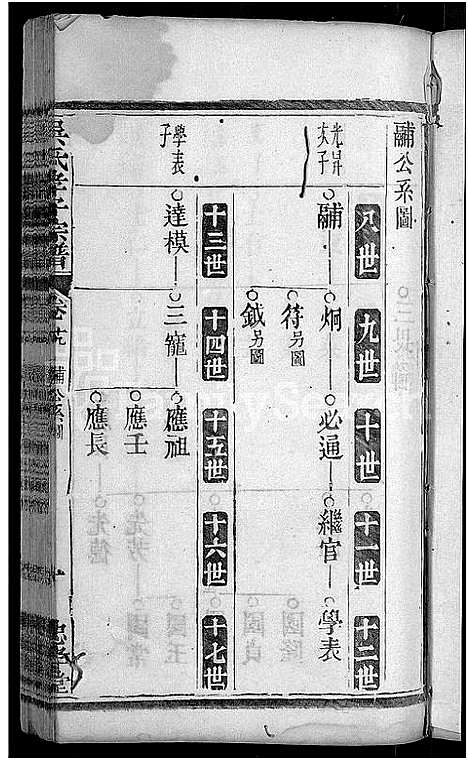 黼公系圖
八世
九世
十世
十一世
十二世
光昇
次子
黼
炯
必通
繼官
學表
符另圖
鉞另圖
十三世
十四世
十五世
十六世
十七世
學表
子
達模
三寵
應祖
應壬
應長
吳氏孝子宗譜
黼公系圖